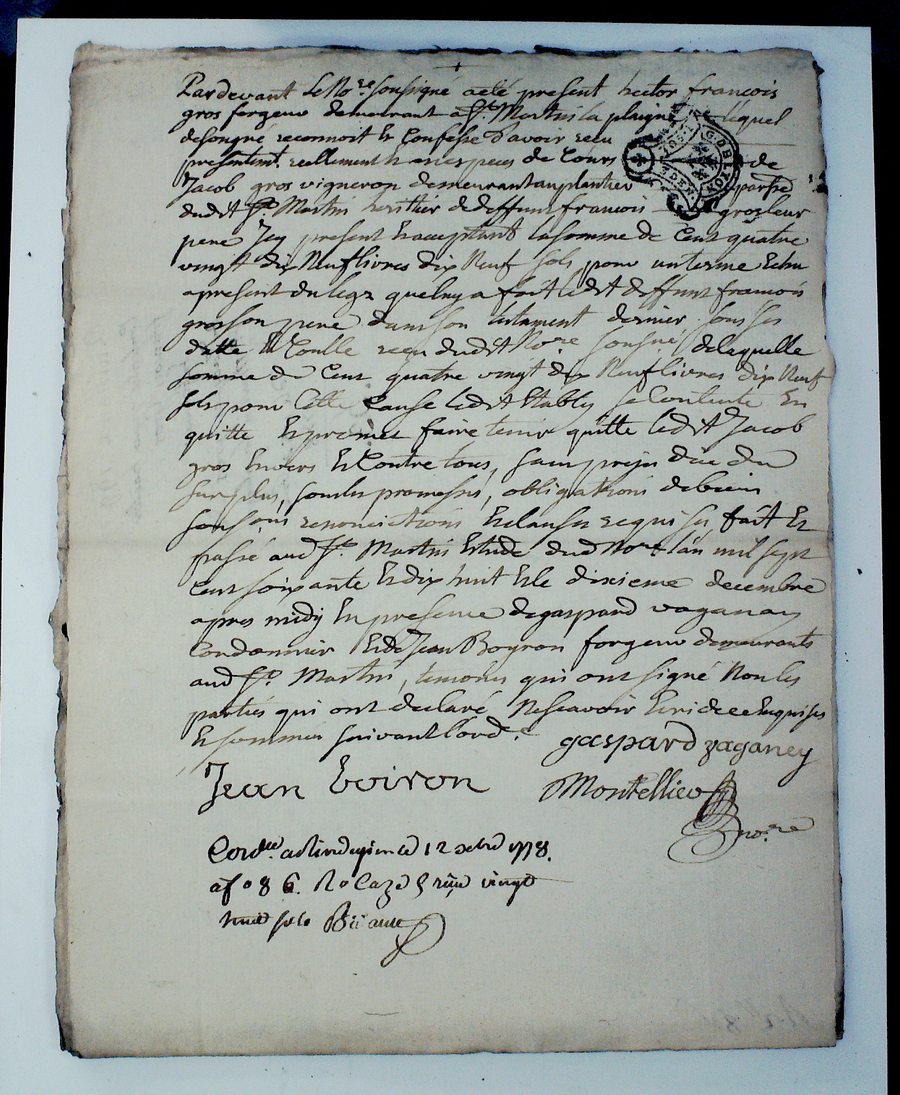 Pardevant Le No.re soussigné a été present hector francois
gros forgeur demeurant a S.t Martin la plaigne lequel
de son gré reconnoit et Confesse d'avoir recu
presentem.t reellement en especes de Cours de
Jacob gros vigneron demeurant au plantier parsse
dudit S.t Martin heritier de deffunt francois gros leur
pere Icy present et acceptant la somme de Cent quatre
vingt dix Neuf livres dix Neuf sols pour un terme Echu
a present du legs que luy a fait ledit deffunt francois
gros son pere dans son testament dernier sous sa
datte et Coulle recu dudit No.re soussigné de laquelle
somme de Cent quatre vingt dix Neuf livres dix Neuf
sols pour Cette Cause ledit Etably se Contente En
quitte et promet faire tenir quitte ledit Jacob
gros Envers et Contre tous, sans prejudice du
surplus, sous les promesses, obligations de biens
renonciations et clauses requises, fait et
passé aud S.t Martin Etude dud No.re l'an mil sept
Cent soixante et dix huit et le dixieme decembre
apres midy En presence de gaspard vaganay
Cordonnier et de Jean Boyron forgeur demeurants
aud S.t Martin, temoins qui ont signé Non les
parties qui ont declaré Ne scavoir Ecrire de ce Enquises
et sommées suivant l'ord.e
gaspard vaganey
Jean boiron Montellier
no.re
Con.lle a Rivedegier ce 12 xbre 1778.
a f.o 86. R.o Caze 5 recu vingt
huit sols
GDE LYON